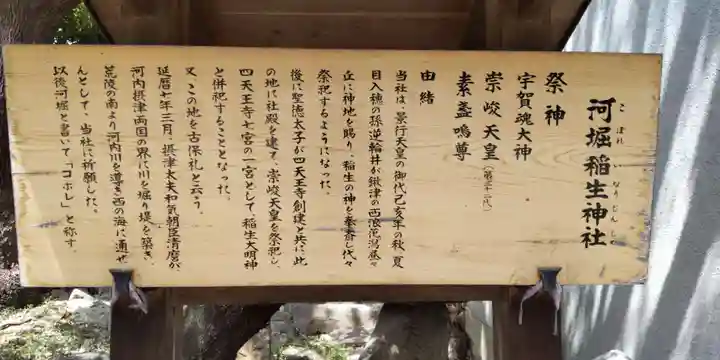 河堀稲生神社
こぼれ いなりじんじゃ
祭神
宇賀魂大神
崇峻天皇（第三十二代）
素盞嗚尊
由緒
当社は、景行天皇の御代己亥年の秋、夏
目入穂の孫逆輪井が鍬津の西浪氾潟基々
丘に神地を賜り、稲生の神を奉斎し代々
祭祀するようになった。
後に聖徳太子が四天王寺創建と共に此
の地に社殿を建て、崇峻天皇を祭祀し
四天王寺七宮の一宮として、稲生大明神
と併祀することとなった。
又、この地を古保礼と云う。
延暦七年三月、摂津大夫和気朝臣清麿が
河内摂津両国の界に川を堀り堤を築き、
荒陵の南より河内川を導き西の海に通ぜ
んとして、当社に祈願した。
以後河堀と書いて「コボレ」と称す。